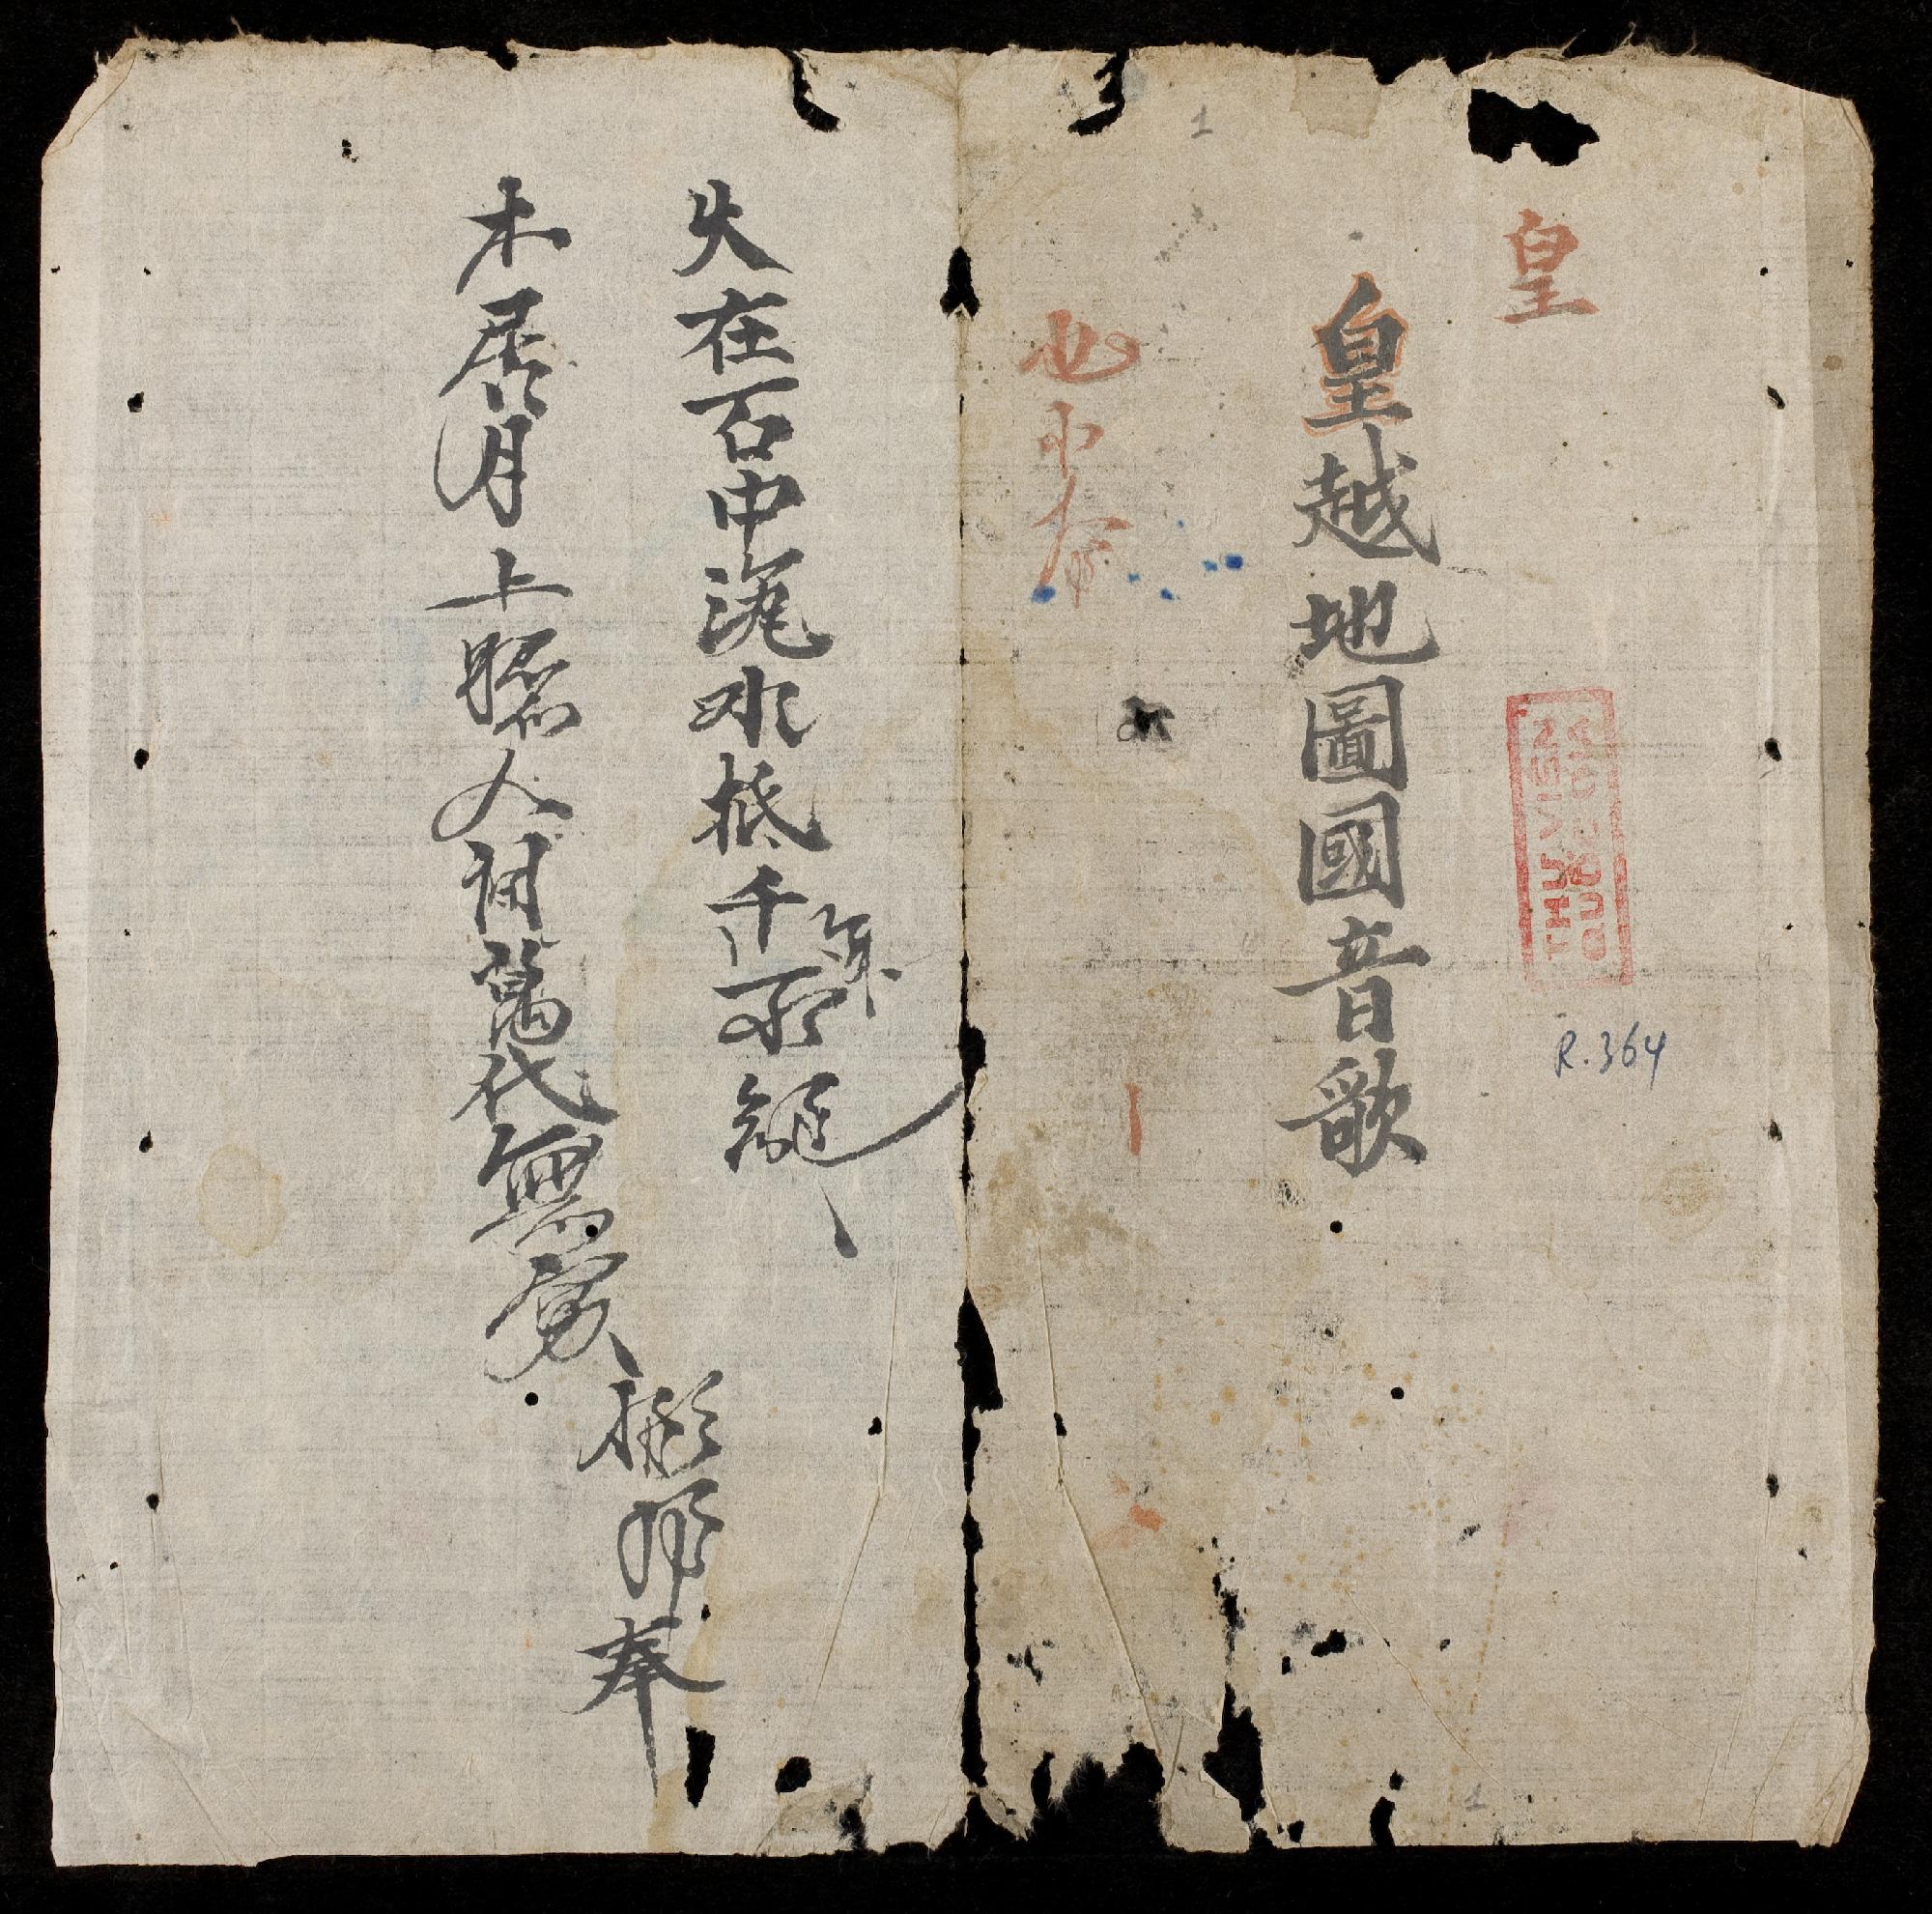 皇
THƯ VIỆN
QUỐC GIA
R.364
皇越地圖國音歌
1
也
火在石中淹水抵千年不絕
木居月上照人間萬代無窮
奉
1